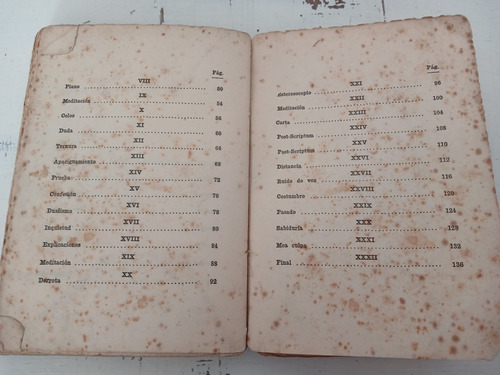 Pág.
VIII
Piano 50
IX
Meditación 54
X
Celos 56
XI
Duda 60
XII
Ternura 64
XIII
Apaciguamiento 68
XIV
Prueba 72
XV
Confesión 76
XVI
Dualismo 78
XVII
Inquietud 80
XVIII
Explicaciones 84
XIX
Meditación 88
XX
Derrota 92
Pág.
XXI
Estereoscopio 96
XXII
Meditación 100
XXIII
Carta 104
XXIV
Post-Scriptum 108
XXV
Post-Scriptum 110
XXVI
Distancia 112
XXVII
Ruido de voz 116
XXVIII
Costumbre 120
XXIX
Pasado 124
XXX
Sabiduría 128
XXXI
Mea culpa 132
XXXII
Final 136